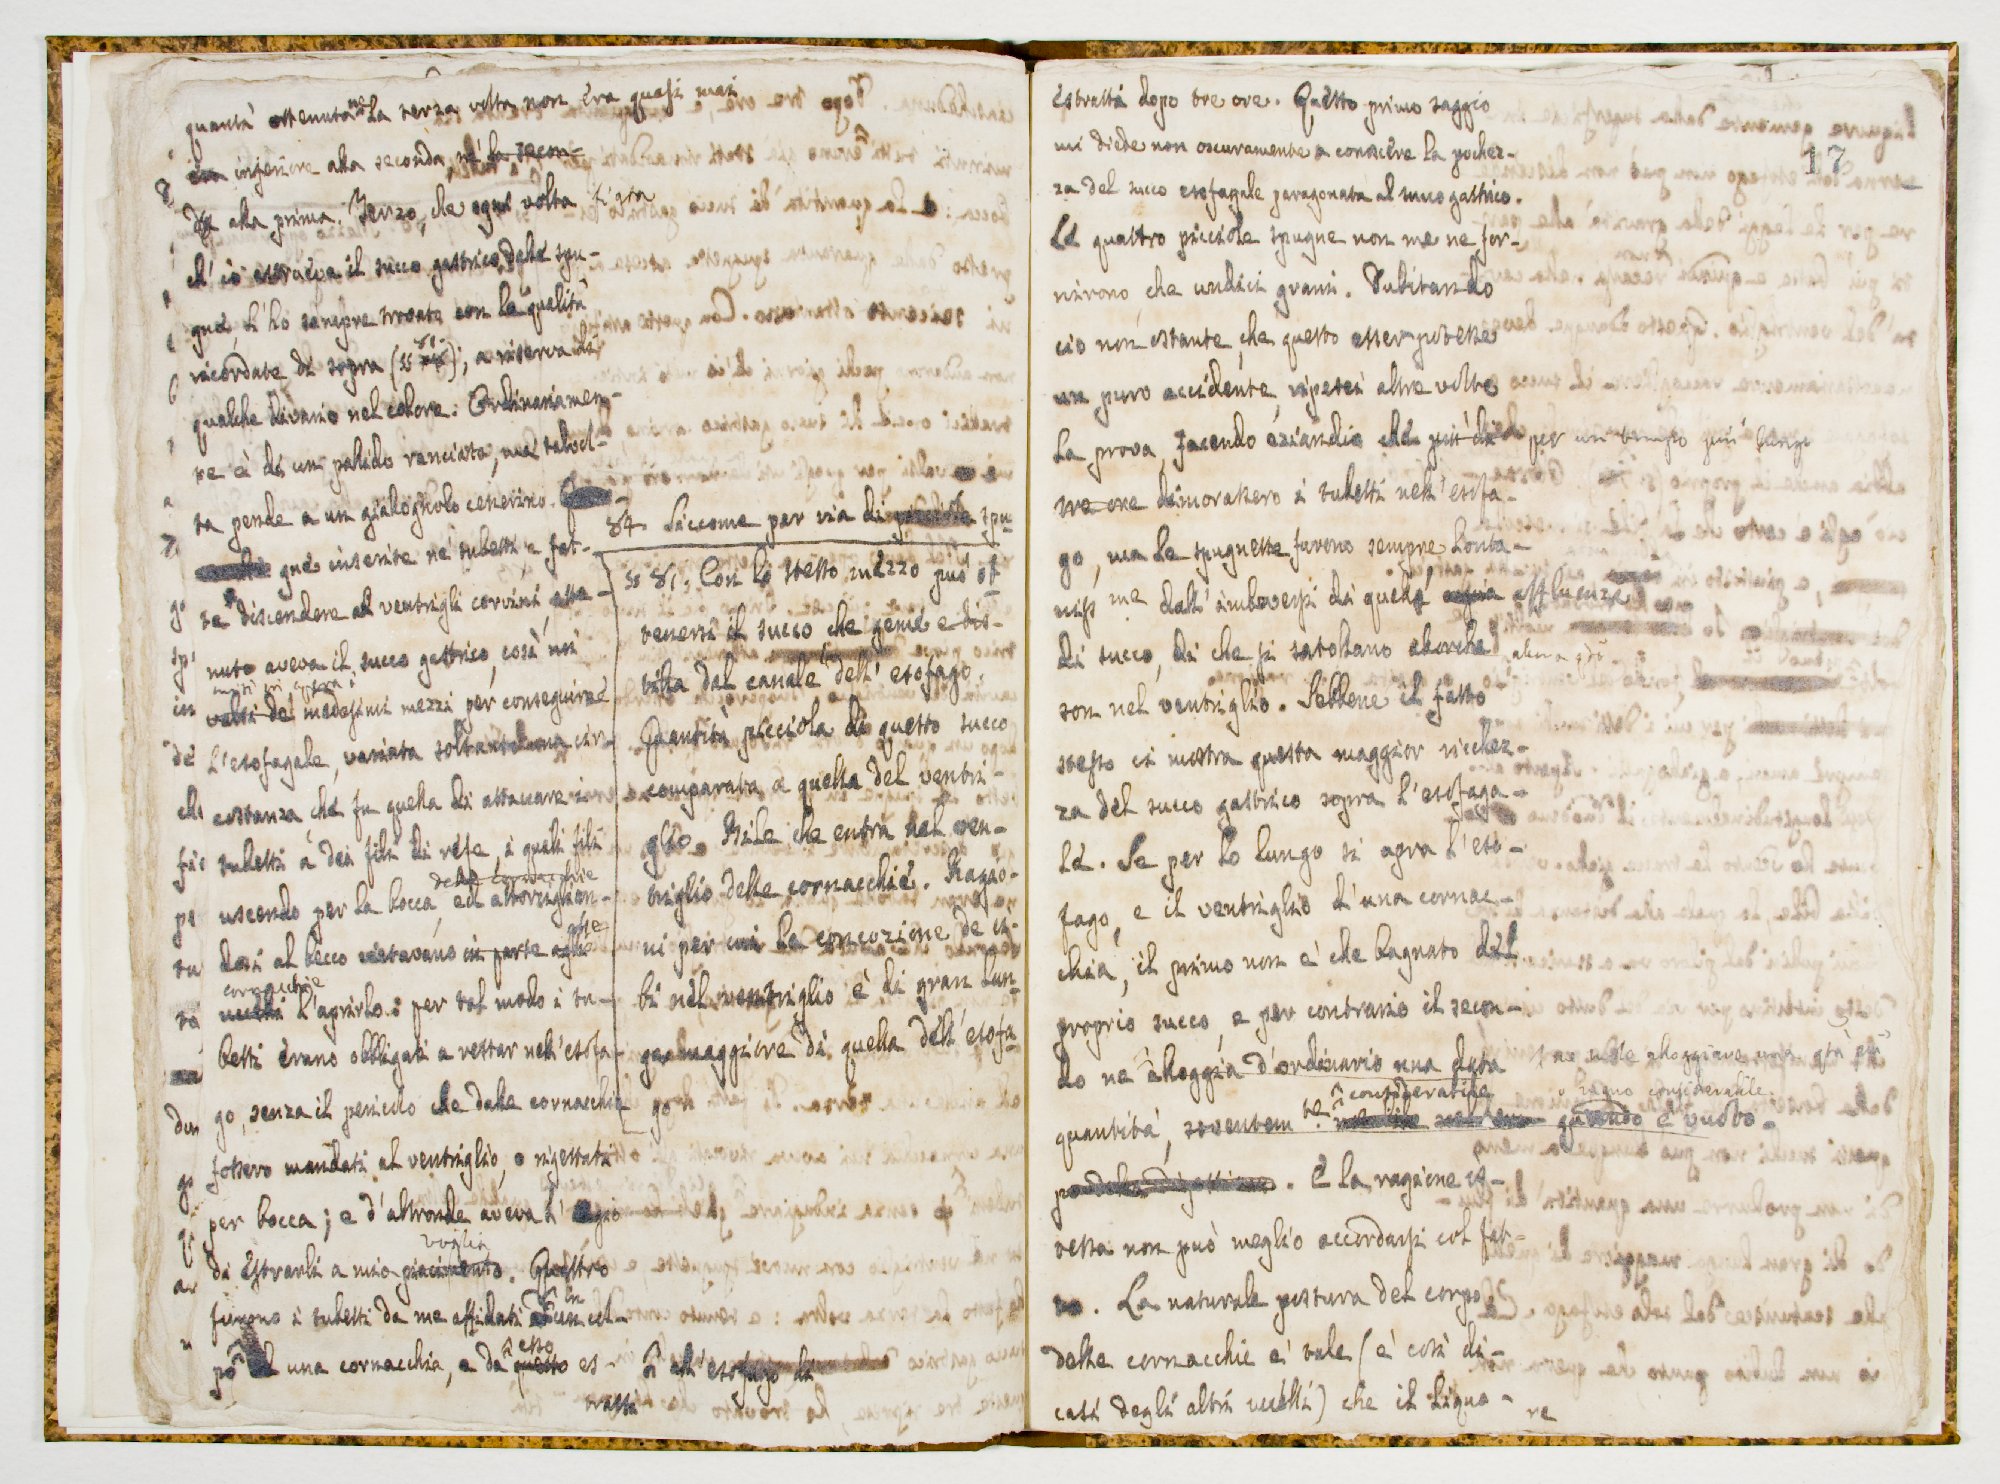 quantà ottenuta ne La terza volta non era quasi mai
inferiore alla seconda, nè la secon-
da alla prima. Terzo, che ogni volta
ch' io estraeva il succo gastrico dalle spu-
gne, l'ho sempre trovato con le qualità
ricordate di sopra (81.); a riserva di
qualche divario nel colore. Ordinariamen-
te è di un pallido ranciato, ma talvol-
ta pende a un giallognolo cenerino.
84. Siccome per via di picciole spu-
gne inserite ne' tubetti e fat-
te discendere al ventrigli corvini, otte-
nuto aveva il succo gastrico, così mi
medesimi mezzi per conseguire
l'esofagale, variata soltanto una cir-
costanza, che fu quella di attaccare i
tubetti a dei fili di refe, i quali fili
delle cornacchie
uscendo per la bocca, ed attorciglian-
dosi al becco vietavano in parte alle
cornacchie
l'aprirlo: per tal modo i tu-
betti erano obbligati a restar nell'esofa-
go, senza il pericolo che dalle cornacchie
fossero mandati al ventriglio, o rigettati
per bocca; e d'altronde aveva l'agio
voglia
di estrarli a mio piacimento. Quattro
furono i tubetti da me affidati
una cornacchia, e da questo es-
esso
tratti
81. Con lo stesso mezzo può ot-
tenersi il succo che geme e dis-
tilla dal canale dell' esofago.
Quantità picciola di questo succo
comparata a quella del ventri-
glio. Bile che entra nel ven-
triglio delle cornacchie. Ragio-
ni per cui la concozione de ci-
bi nel ventriglio è di gran lun-
ga maggiore di quella dell'esofa-
go
all'esofago di
17
estratti dopo tre ore. Questo primo saggio
mi diede non oscuramente a conoscere la pochez-
za del succo esofagale paragonata al succo gastrico.
Le quattro picciole spugne non me ne for-
nirono, che undici grani. Dubitando
ciò non ostante, che questo esser potesse
un puro accidente, ripetei altre volte
la prova, facendo eziandio che più di per un tempo più lungo
tre ore dimorassero i tubetti nell'esofa-
go, ma le spugnette furono sempre lonta-
nissime dall'imbeversi di quella affluenza
di succo, di che si satollano allorchè
son nel ventriglio. Sebbene il fatto
stesso ci mostra questa maggior ricchez-
za del succo gastrico sopra l'esofaga-
le. Se per lo lungo si apra l'eso-
fago, e il ventriglio d'una cornac-
chia, il primo non è che bagnato del
proprio succo, e per contrario il secon-
do ne alloggia d'ordinario una data
ne suole alloggiare una
considerabile.
quantità, soventem te considerabile quando è vuoto.
po della digestione. E la ragione is-
tessa non può meglio accordarsi col fat-
to. La naturale postura del corpo
delle cornacchie è tale (e così di-
casi degli altri uccelli) che il liquo-
re